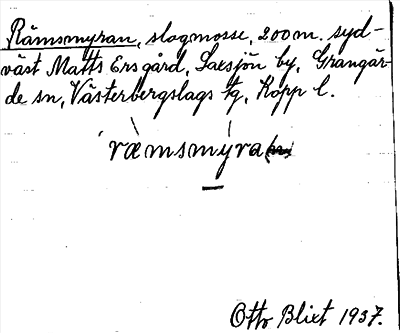 Rämsmyran, slogmosse, 200 m. syd-
väst Matts Ersgård, Saxsjön by, Grangär-
de sn, Västerbergslags tg, Kopp l.
ræmsmýra(n)
Otto Blixt 1937.